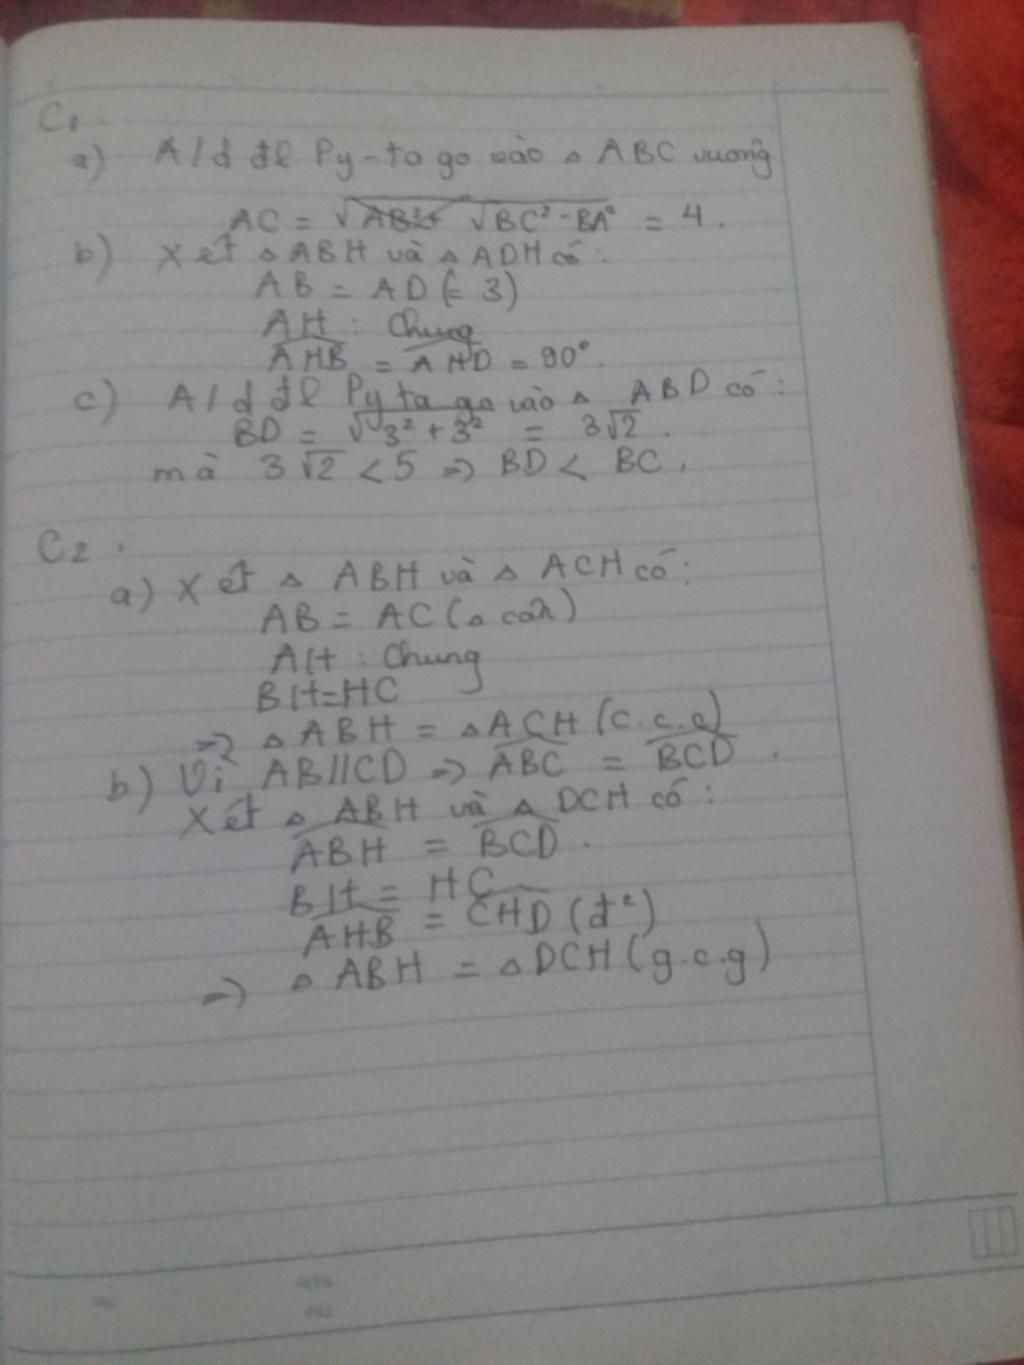 C1.
a) A/d đl Py-ta go vào △ ABC vuông
AC = √AB²+ √BC² - BA² = 4.
b) Xét △ ABH và △ ADH có:
AB = AD (= 3)
AH : Chung
AHB = AHD = 90°.
c) A/d đl Py ta go vào △ ABD có:
BD = √3² + 3² = 3√2.
mà 3√2 < 5 => BD < BC.
C2.
a) Xét △ ABH và △ ACH có:
AB = AC (△ cân)
AH : Chung
BH = HC
=> △ ABH = △ ACH (c.c.c)
b) Vì AB//CD => ABC = BCD.
Xét △ ABH và △ DCH có:
ABH = BCD.
BH = HC
AHB = CHD (đ²)
=> △ ABH = △ DCH (g.c.g)